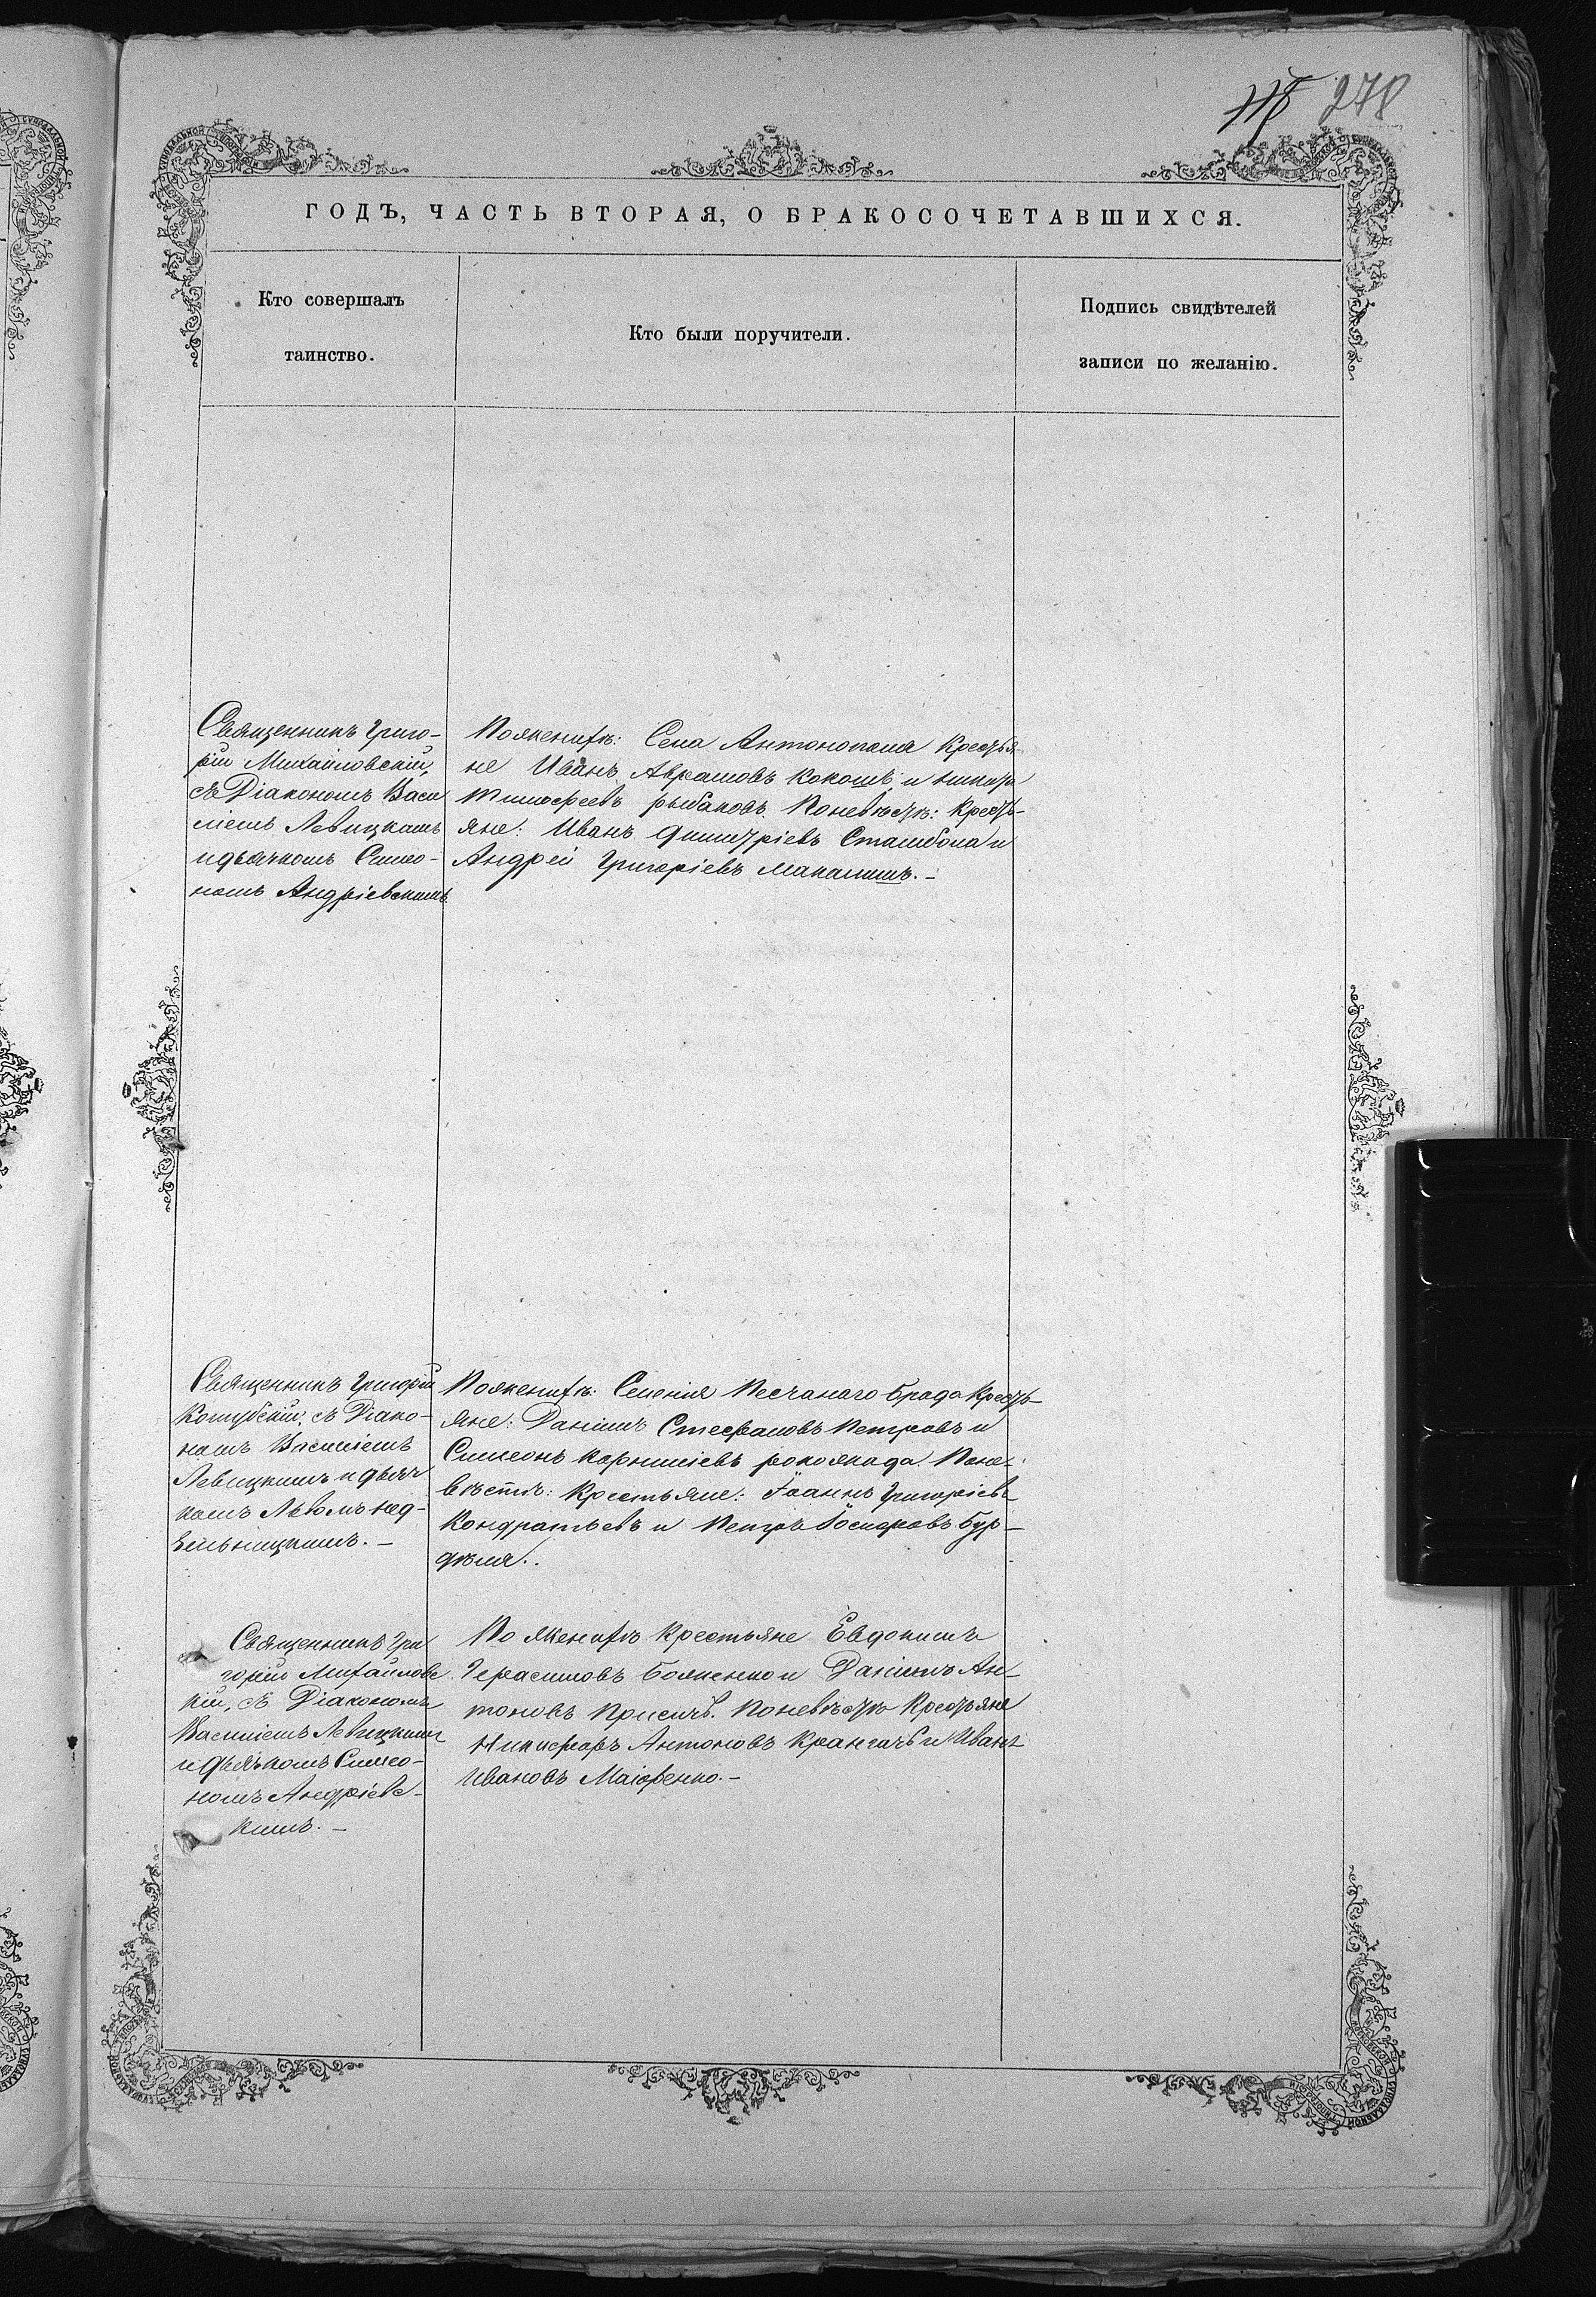 278
ГОДЪ, ЧАСТЬ ВТОРАЯ, О БРАКОСОЧЕТАВШИХСЯ.
Кто совершалъ
таинство.
Кто были поручители.
Подпись свидѣтелей
записи по желанію.
Священникъ Григо-
рій Михайловскій,
съ Діакономъ Васи
ліемъ Левицкимъ
и дьячкомъ Симео-
номъ Андріевскимъ
По женихѣ: Села Антонополя Крестья-
не Иванъ Аврамовъ Кокошъ и
Тимофеевъ рыбаковъ. По невѣстѣ: Кресть-
яне: Иванъ Димитріевъ Стамбола и
Андрей Григоріевъ
Священникъ Григорій
съ Діако-
номъ Василіемъ
Левицкимъ и дьяч
комъ Львомъ Нед-
зѣльницкимъ. —
По женихѣ: Селенія Песчанаго Брада Кресть-
яне: Даніилъ Стефановъ Петровъ и
Симеонъ Корниліевъ По не-
вѣстѣ: Крестьяне: Іоаннъ Григоріевъ
Кондратьевъ и Петръ Бур-
Священникъ Гри
горій Михайловс
кій, съ Діакономъ
Василіемъ Левицкимъ
и дьячкомъ Симео-
номъ Андріевс-
кимъ. —
По женихѣ Крестьяне Евдокимъ
Герасимовъ Боженко и Даніилъ Ан-
тоновъ По невѣстѣ Крестьяне
Никифоръ Антоновъ и Иванъ
Ивановъ —